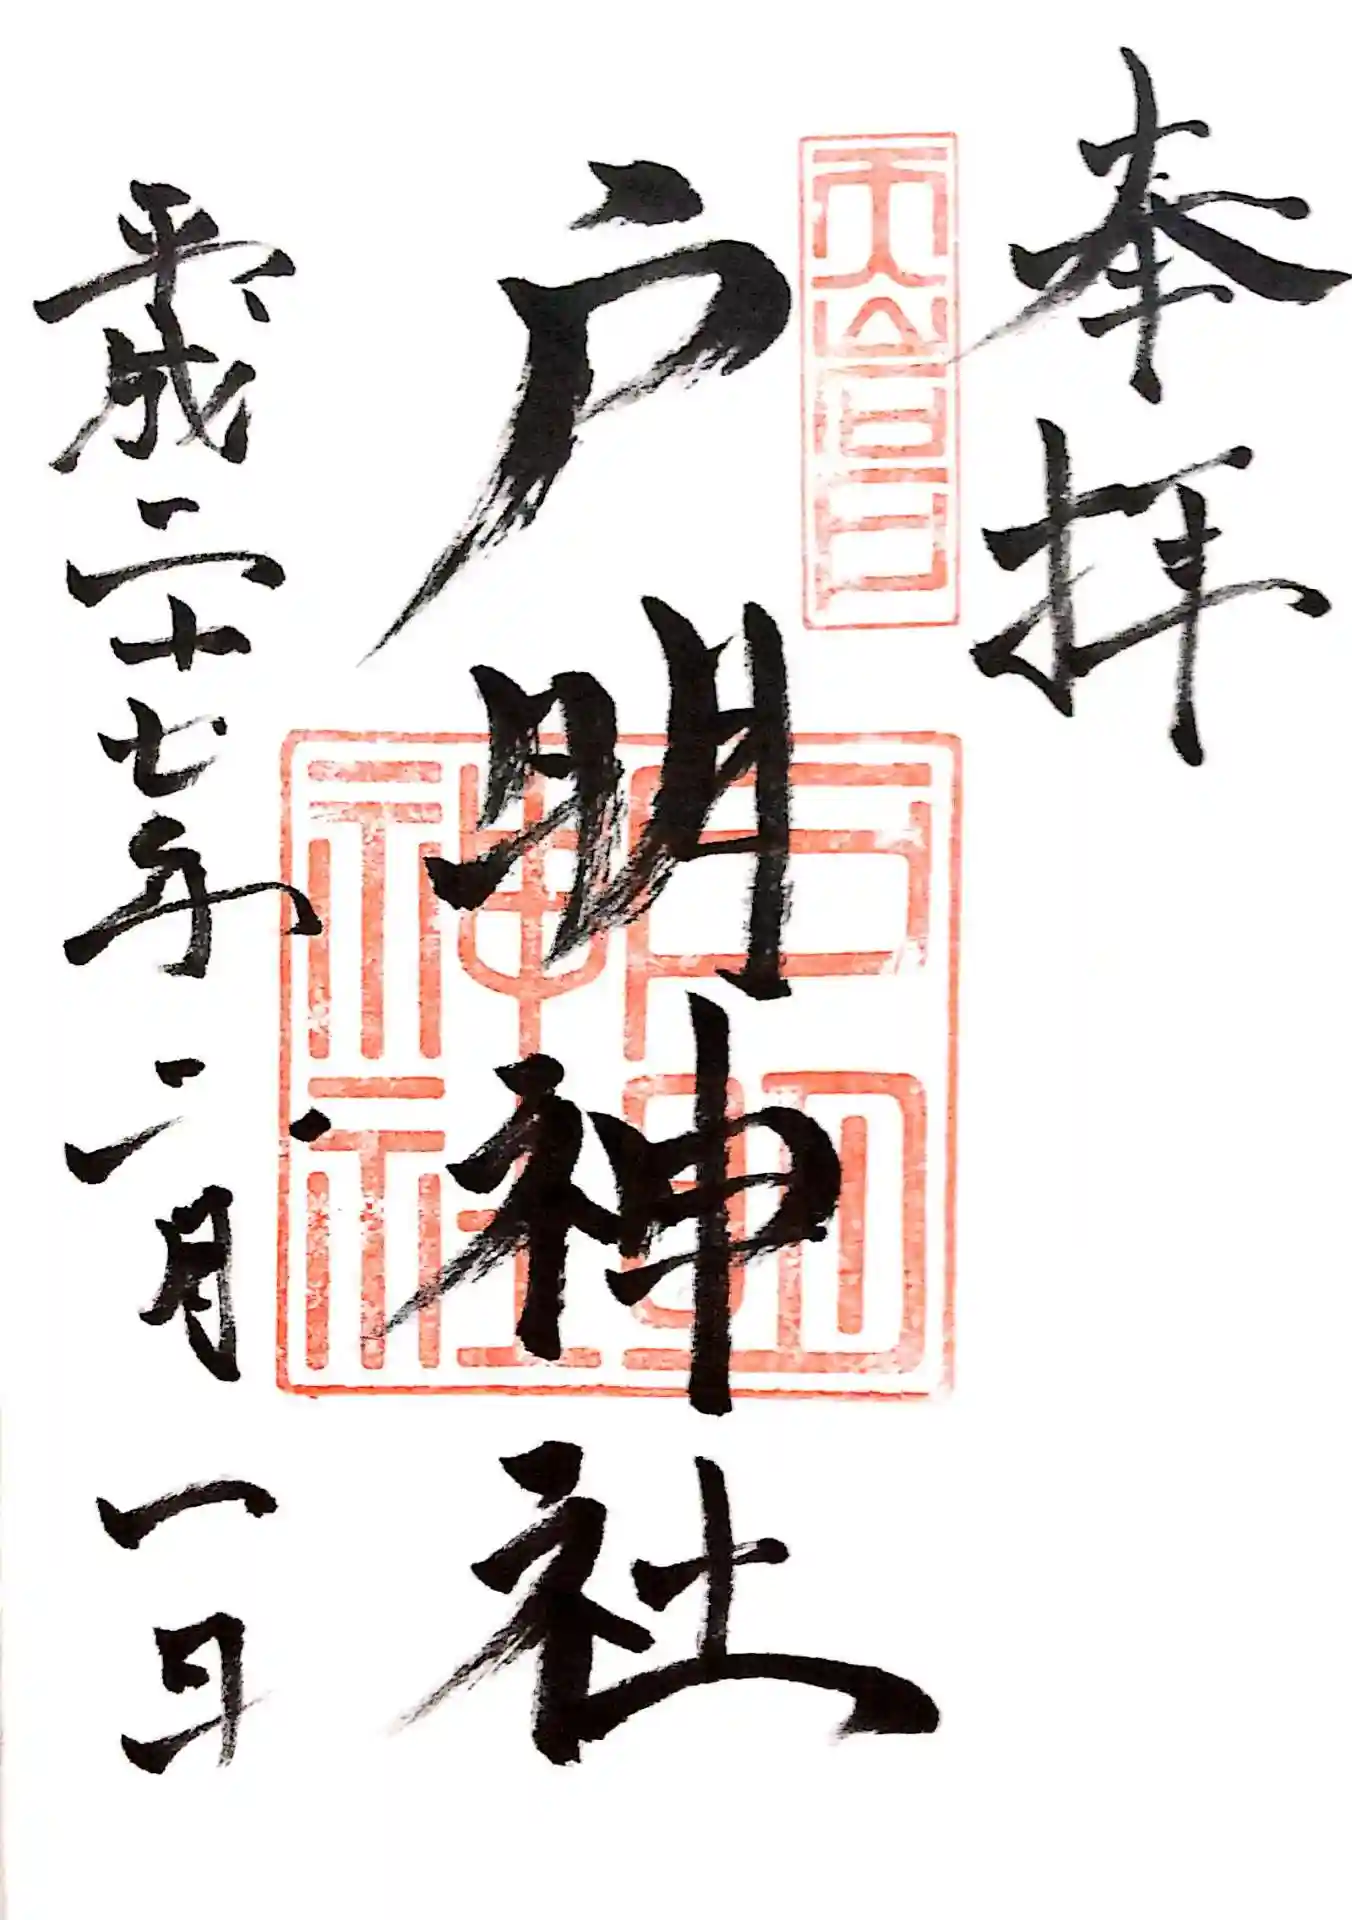 奉拝
戸明神社
戸明神社
平成二十七年二月一日